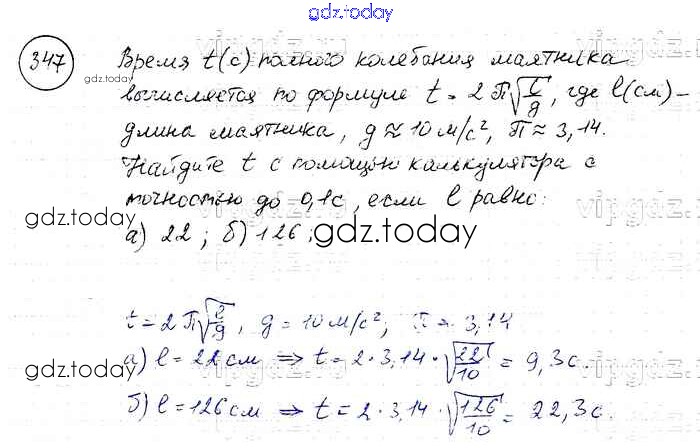 gdz.today
347 Время t(с) полного колебания маятника
gdz.today
вычисляется по формуле t = 2π√(l/g), где l(см) –
длина маятника, g ≈ 10 м/с², π ≈ 3,14.
Найдите t с помощью калькулятора с
точностью до 0,1с, если l равно:
gdz.today
а) 22; б) 126;
gdz.today
t = 2π√(l/g), g = 10 м/с², π ≈ 3,14
а) l = 22 см ⇒ t = 2·3,14·√(22/10) = 9,3с.
gdz.today
б) l = 126 см ⇒ t = 2·3,14·√(126/10) = 22,3с.